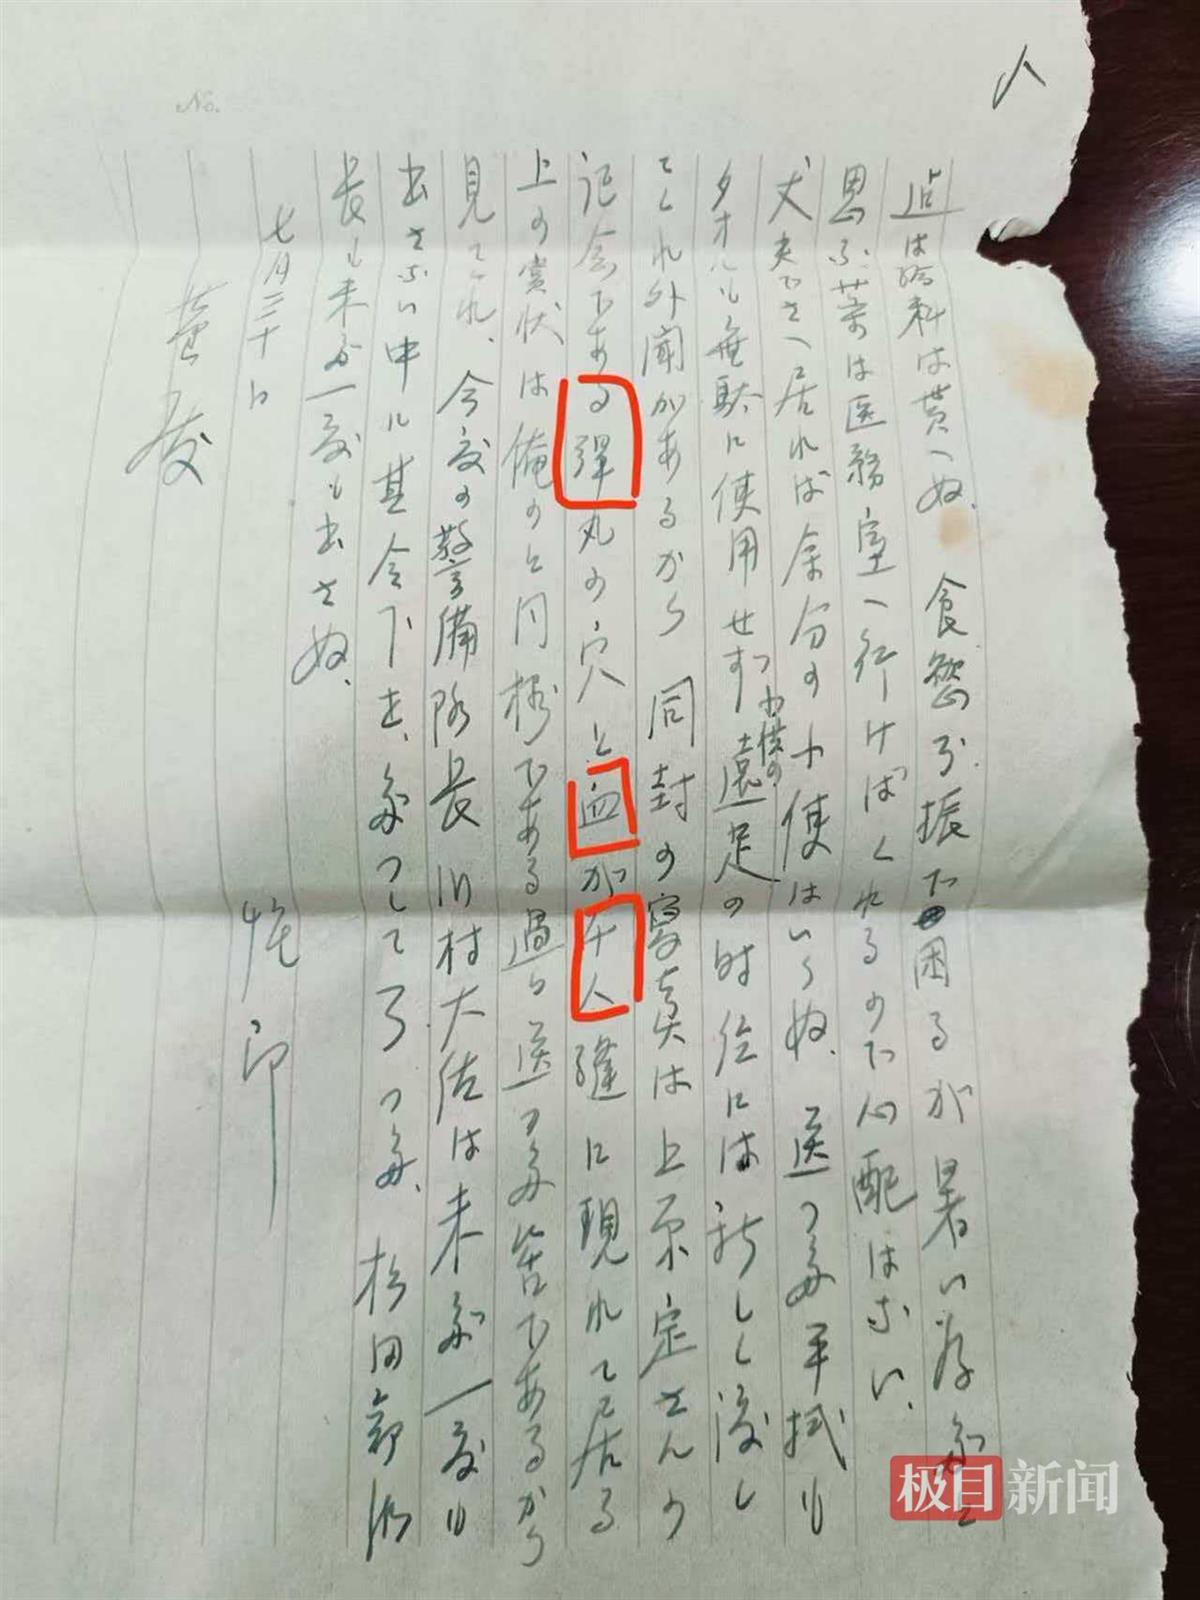 No.
人
迄は給料は貰へぬ、食慾不振で困るが暑い為だと
思ふ、薬は医務室へ行けばくれるので心配はない、
丈夫でさへ居れば余分の小使はいらぬ、送つた手拭も
タオルも無駄に使用せずつ小供の遠足の時位には新しく渡し
てくれ外聞があるから 同封の写真は上原定さんの
記念である弾丸の穴と血が千人縫に現れて居る
上の賞状は俺のと同様である過日送つた筈であるから
見てくれ、今度の警備隊長川村大佐は未だ一度も
出さない中に其令下
長も未だ一度も出さぬ、
七月三十日
極目新闻